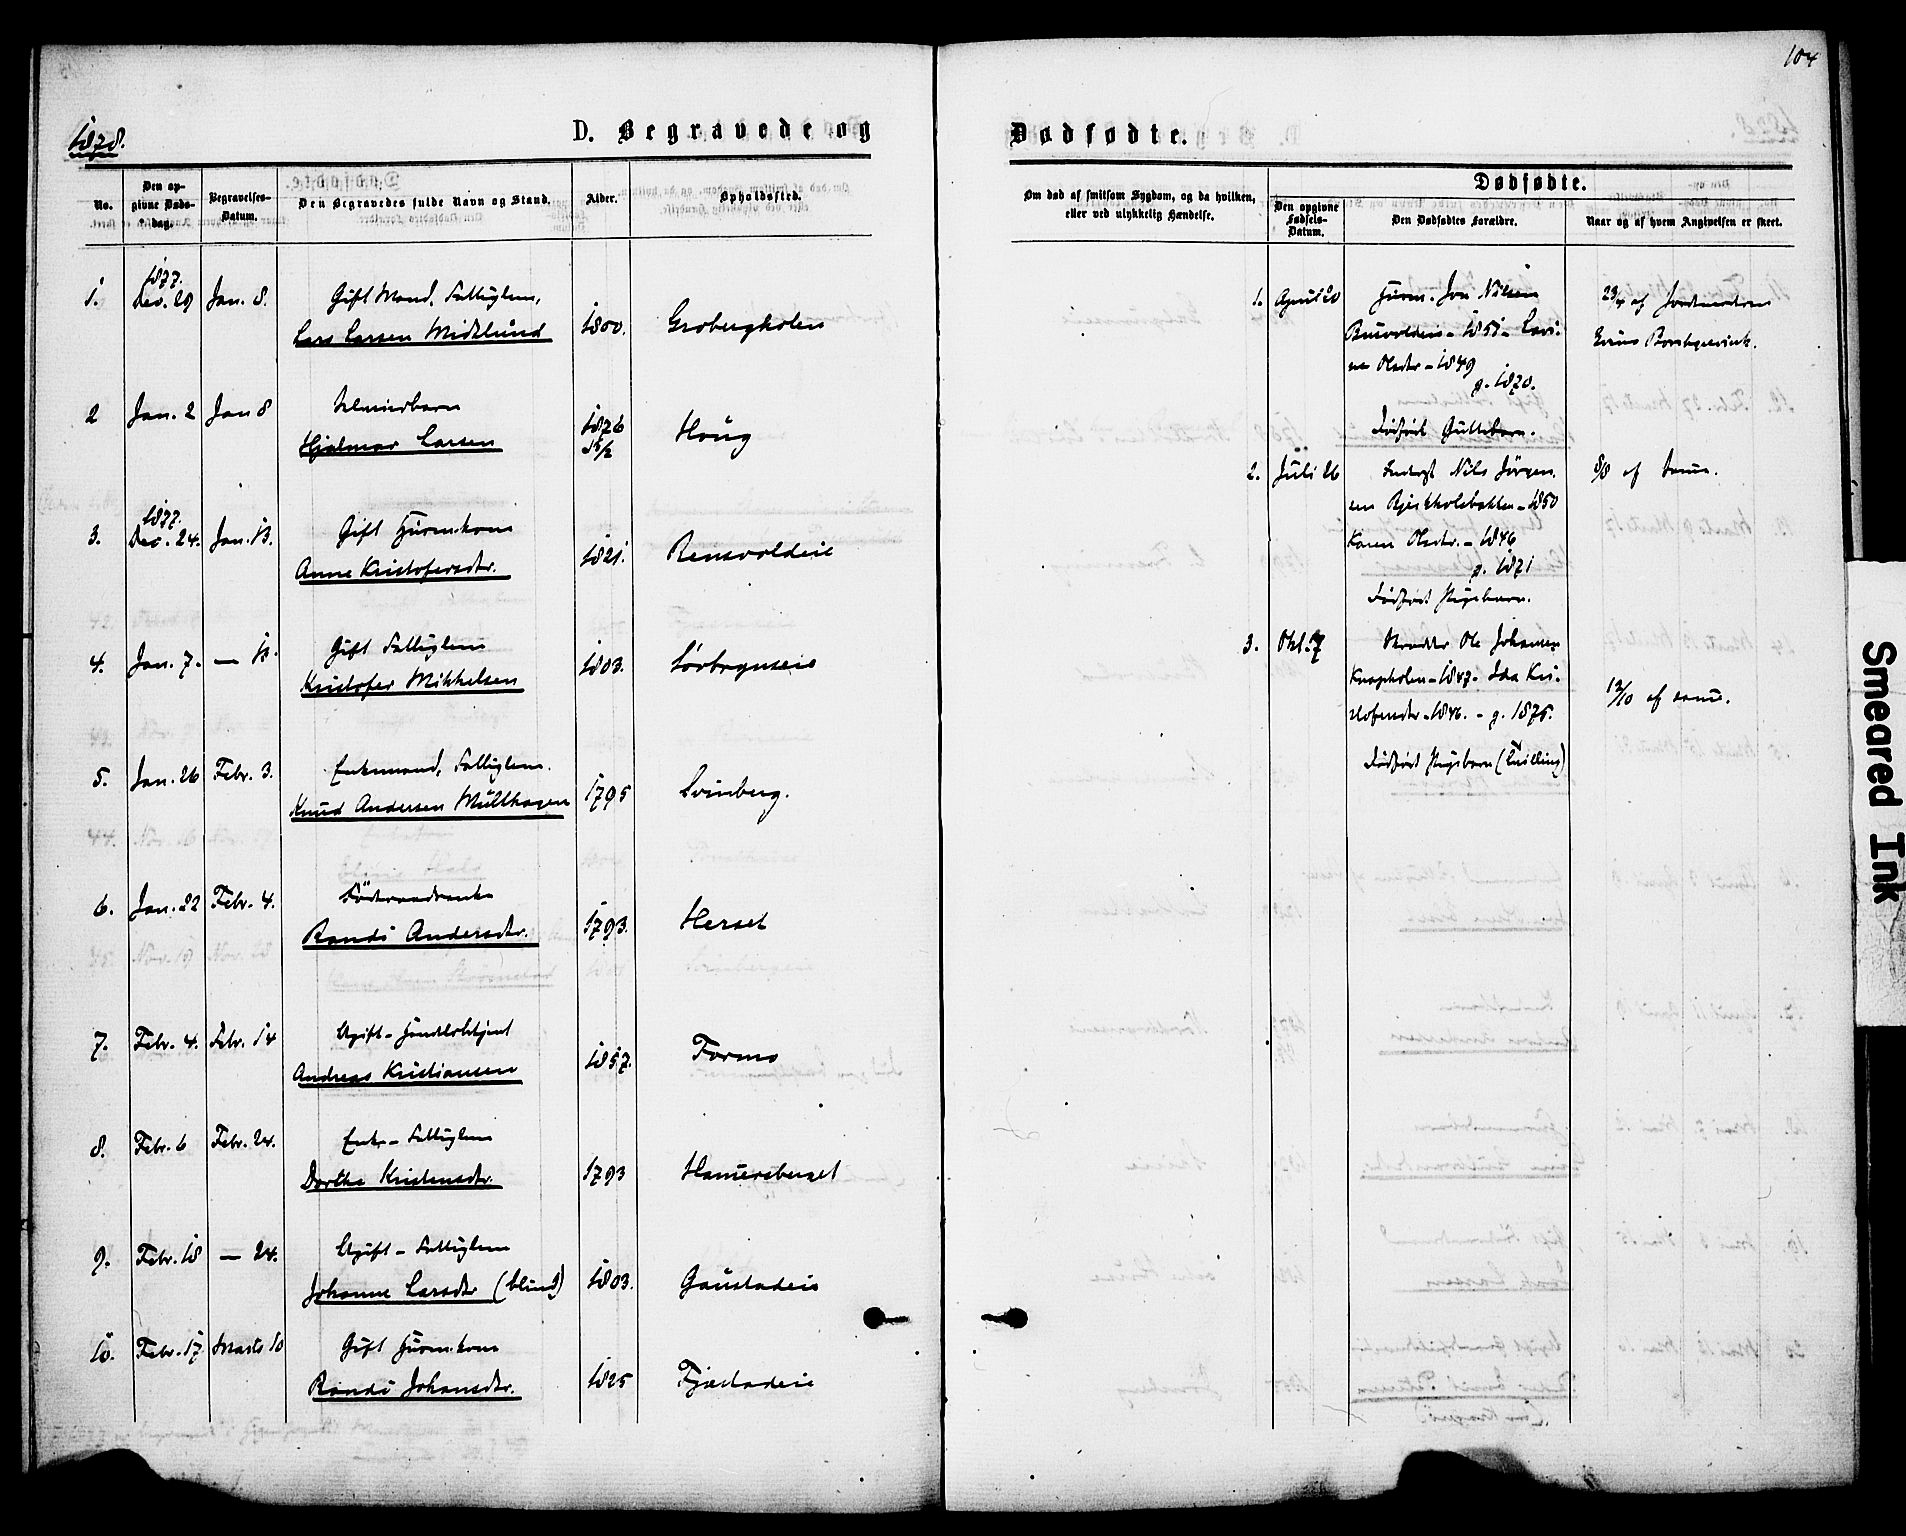 104
1878.
D. Begravede og
Dødsfødte.
No.
Den op-
givne Døds-
dag.
Begravelses-
Datum.
Den Begravedes fulde Navn og Stand.
Alder.
Opholdssted.
1.
1877.
Dec. 29
Jan. 8.
Gift Mand, Fattiglem,
Lars Larsen Midtlund
1800.
Grobergholen
2
Jan. 2
Jan 8
Hjalmar Larsen
1876
Houg
3.
1877.
Dec. 24.
Jan. 13.
Gift Huusm.kone
Anne Kristofersdtr.
1821.
Rensvoldeie
4.
Jan. 7.
— 13.
Gift Fattiglem
Kristofer Mikkelsen
1803.
5.
Jan. 26
Febr. 3.
Enkemand, Fattiglem.
Knud Andersen Multhagen
1795
Svinberg.
6.
Jan. 22
Febr. 4.
Föderaadsenke
Randi Andersdtr.
1793.
Herset
7.
Febr. 4.
Febr. 14
Ugift -
Andreas Kristiansen
1857.
Formo
8.
Febr. 6
Febr. 24.
Enke - Fattiglem
Dorthe Kristensdtr.
1793
Hamersberget
9.
Febr. 18
— 24.
Ugift - Fattiglem
Johanne Larsdtr (blind)
1803.
Gaustadeie
10.
Febr. 17
Marts 10
Gift Huusm.kone
Randi Johansdtr.
1825
Fjæstadeie
Om død af smitsom Sygdom, og da hvilken,
eller ved ulykkelig Hændelse.
Dødsfødte.
Den opgivne
Fødsels-
Datum.
Den Dødfødtes Forældre.
Naar og af hvem Angivelsen er skeet.
1.
April 20
Huusm. Jon Nilsen
- 1851 - Lovi-
se Olsdtr - 1849
g. 1870.
Dödfödt Guttebarn.
23/4 af Jordmoderen
2.
Juli 26
Nils Jörgen-
sen - 1850
Karen Olsdtr. - 1846
g. 1871
Dödfödt Pigebarn.
8/8 af Samme.
3.
Okt. 7
Skrædder Ole Johansen
Knapholen - 1847 - Ida Kri-
stofersdtr - 1846. - g. 1875.
Dödfödt Pigebarn (Tvilling)
12/10 af samme.
Smeared Ink